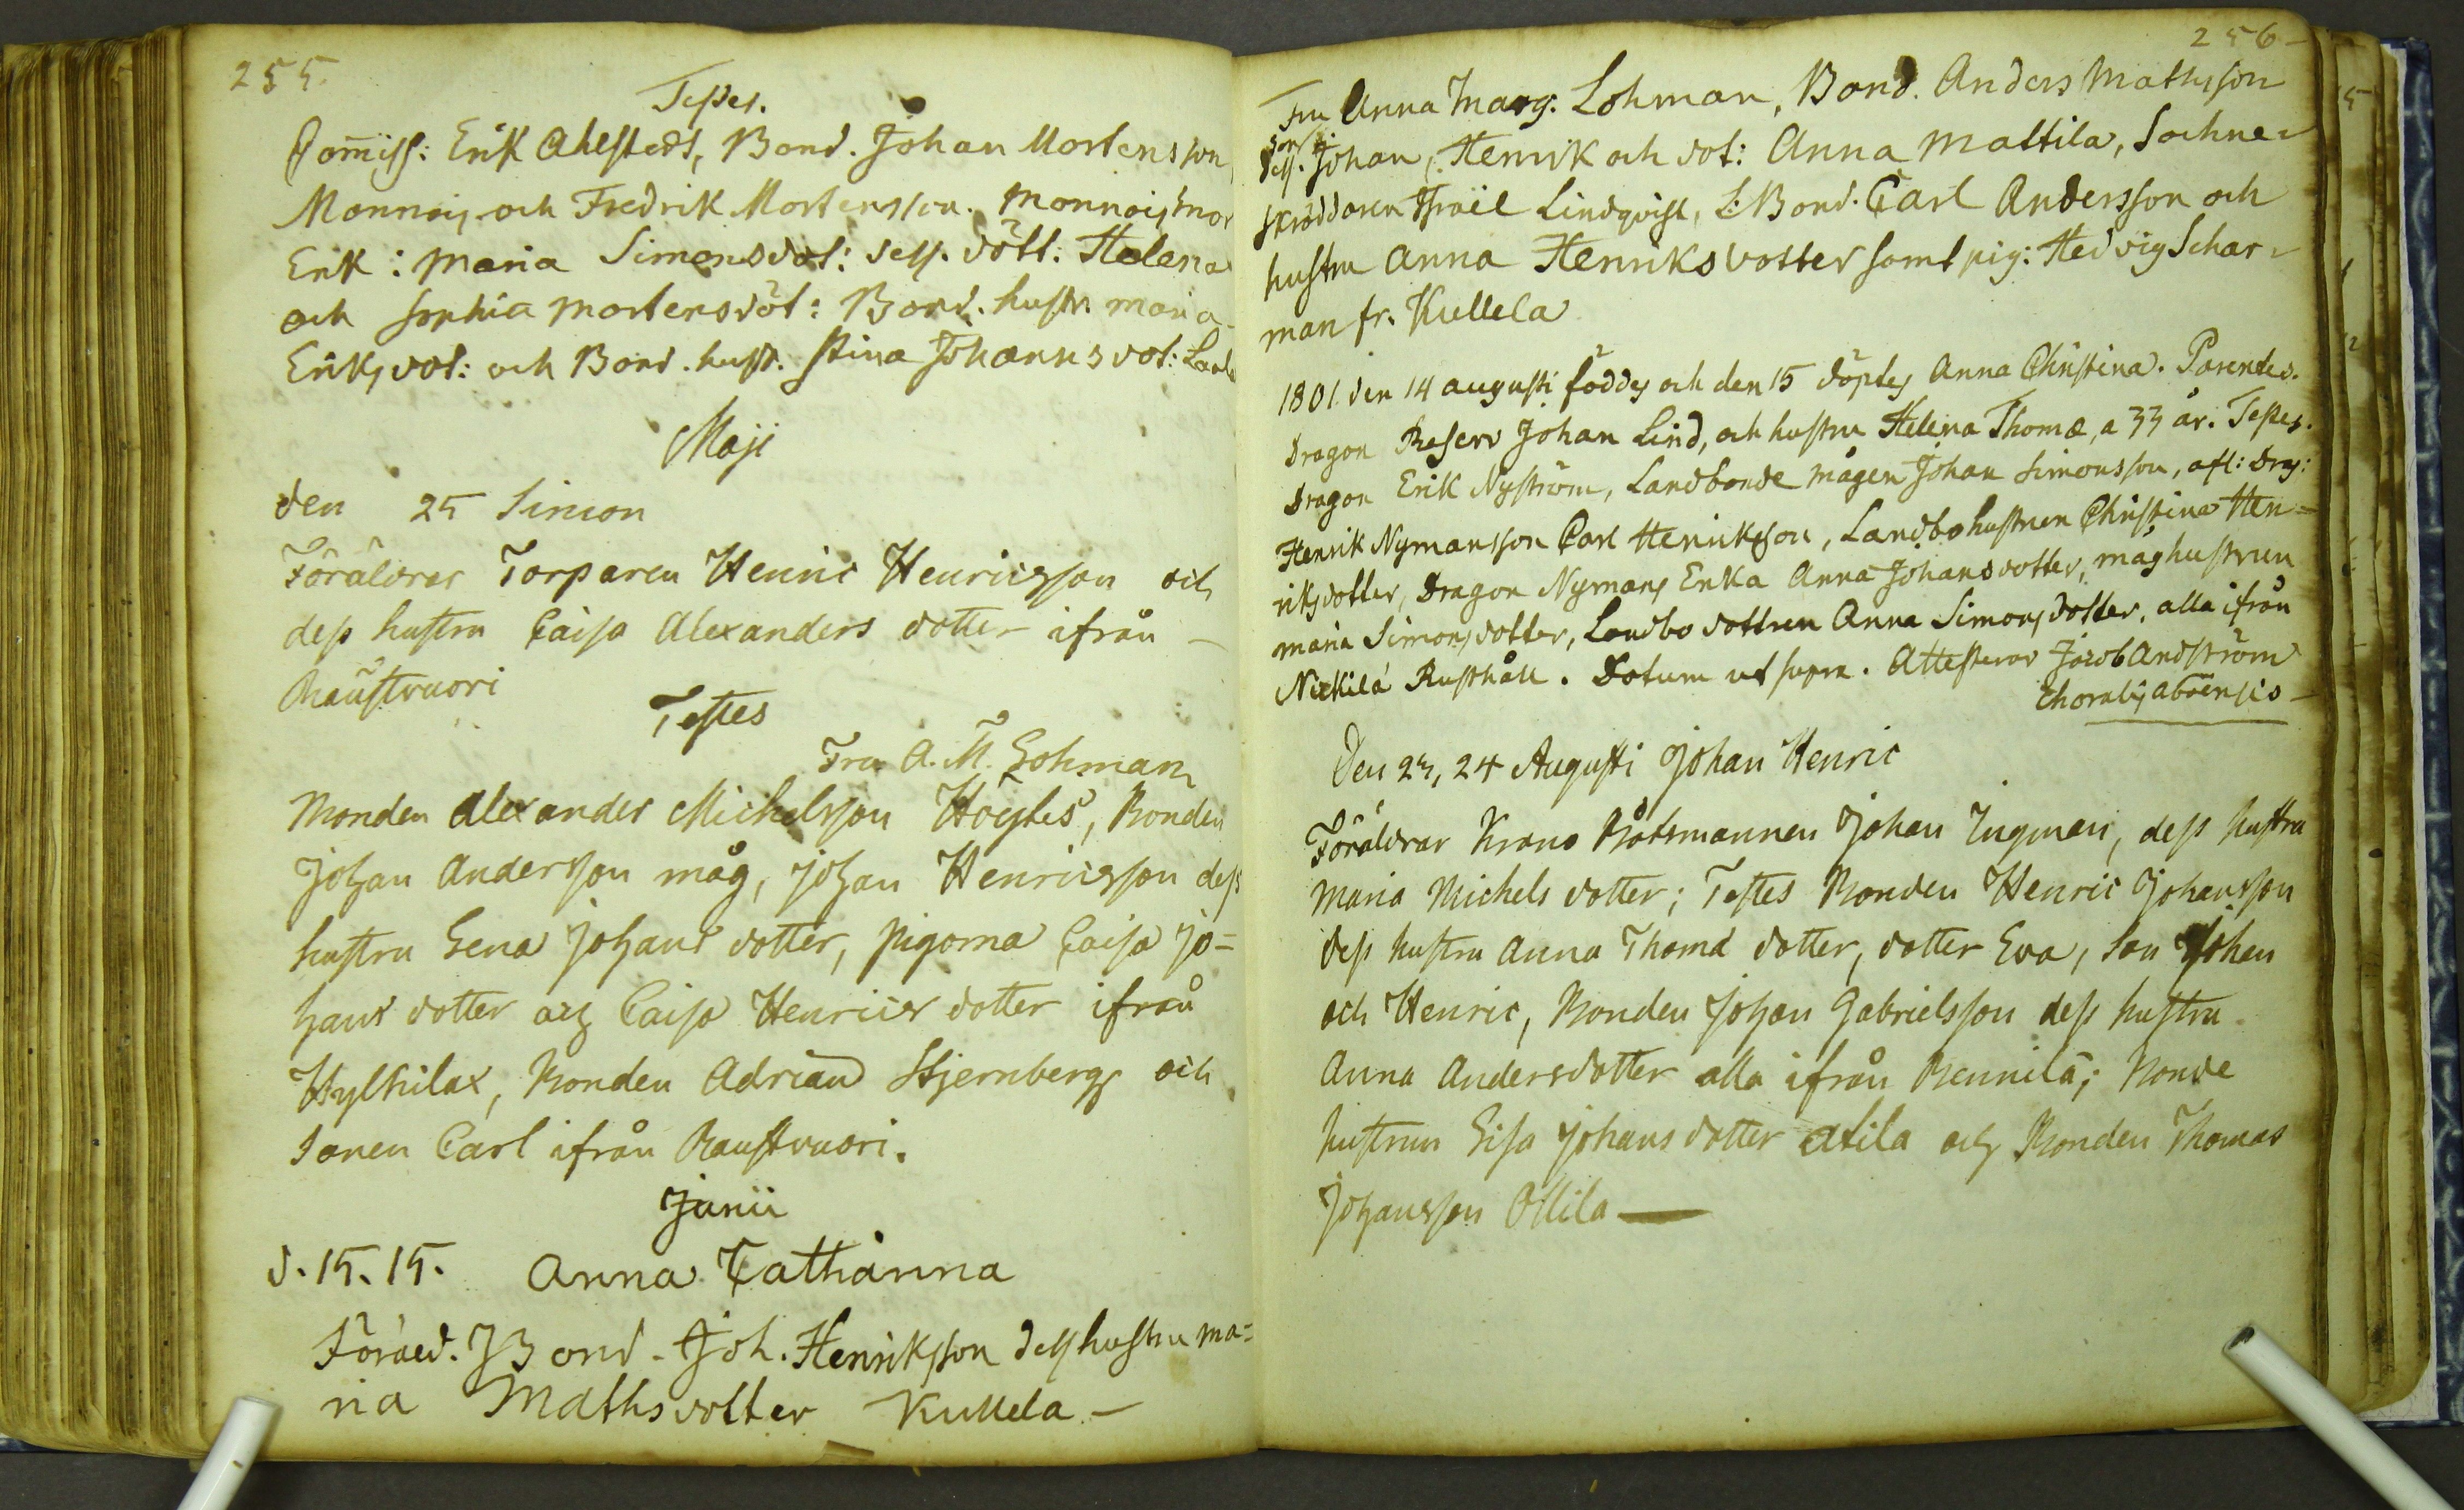 255.
Testes.
Com̄iss: Erik Ahlstedt, Bond. Johan Mortensson
Monnois och Fredrik Mortensson. Monnois, mor
Erik: Maria Simonsdot: dess dött: Helena
och Sophia Mortensdöt: Bond. hustr. Maria
Eriksdot: och Bond. hust. Stina Johannsdot:
Maji
den 25 Simon
Föräldrar Torparen Henric Henricsson och
dess hustru Caisa Alexanders dotter ifrån –
Raustvuori
Testes
Fru A. M. Lohman
Bonden Alexander Michelsson Höylis, Bonden
Johan Andersson måg, Johan Henricsson dess
hustru Lena Johans dotter, pigorna Caisa Jo=
hans dotter och Caisa Henrics dotter ifrån
Hylkilax, Bonden Adrian Stjernberg och
sonen Carl ifrån Raustvuori.
Junii
d. 15. 15. Anna Catharina
Föräld. Bond. Joh. Henriksson dess hustru Ma=
ria Mathsdotter Kullela –
256 –
Fru Anna Marg: Lohman, Bond. Anders Mathsson
dess Son Johan, Henrik och dot: Anna Mattila, Sockne=
skräddaren Israël Lindqvist, L: Bond. Carl Andersson och
hustru Anna Henriksdotter samt pig: Hedvig Schar=
man fr. Kullela
1801 den 14 augusti föddes och den 15 döptes Anna Christina. Parentes.
Dragon Reserv Johan Lind, och hustru Helena Thomæ, a 33 år. Testes.
Dragon Erik Nyström, Landbonde mågen Johan Simonsson, afl: Drag:
Henrik Nymansson Carl Henriksson, Landbohustrun Christina Hen=
riksdotter, Dragon Nymans Enka Anna Johansdotter, måghustrun
Maria Simonsdotter, Landbo dottren Anna Simonsdotter, alla ifrån
Nickilä Rusthåll. Datum ut supra. Attesterar Jacob Andström
Choralis Aboënsis –
Den 23, 24 Augusti Johan Henric
Föräldrar Krono Båtsmannen Johan Ingman, dess hustru
Maria Michels dotter; Testes Bonden Henric Johansson
dess hustru Anna Thomæ dotter, dotter Eva, son Johan
och Henric, Bonden Johan Gabrielsson dess hustru
Anna Andersdotter alla ifrån Rennilä; Bonde
hustrun Lisa Johans dotter Atila och Bonden Thomas
Johansson Ollila –